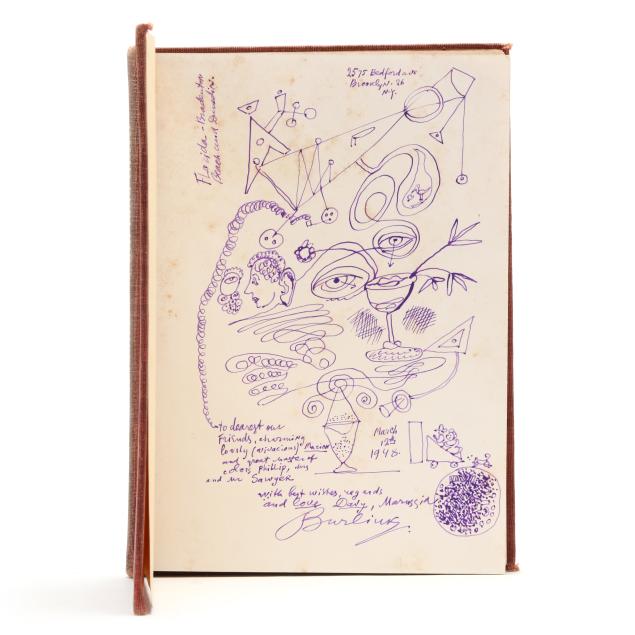 Florida - Bradenton
Beach and Sarasota.
2575 Bedford ave
Brooklyn - 26
N.Y.
to dearest our
Friends, charming
lovely (vivacious) Marion
and great master of
colors Phillip, mrs
and mr Sawyer
March
12th
1948.
with best wishes, regards
and love Davy, Marussia
Burliuk.